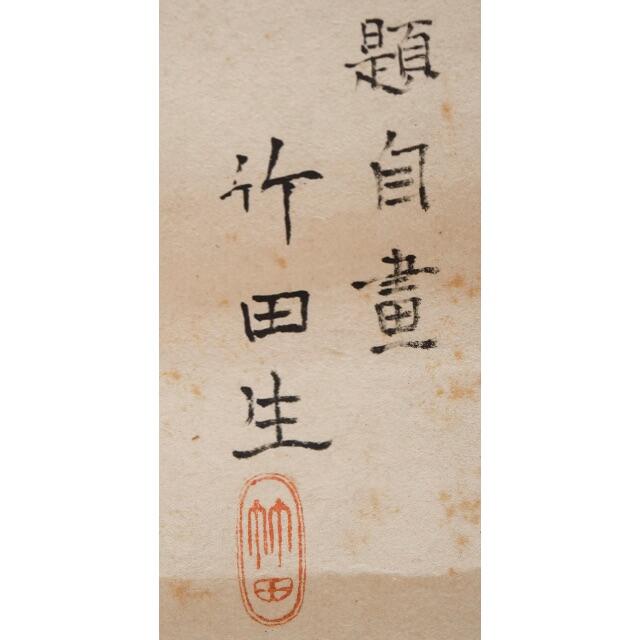 題自畫
竹田生
竹田